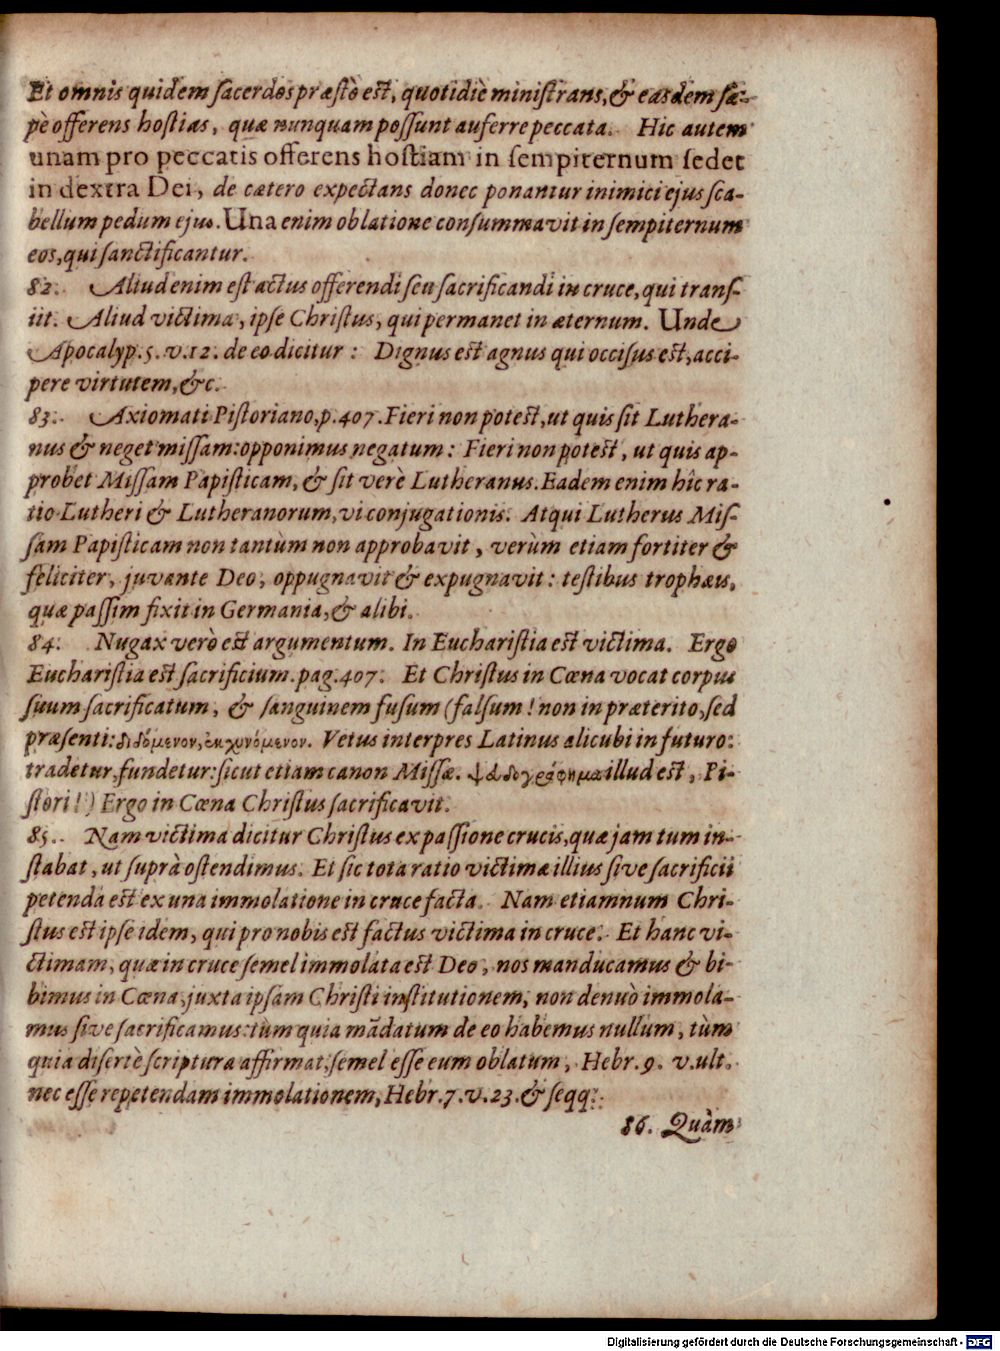 Et omnis quidem sacerdos præstò est, quotidiè ministrans, & easdem sæ-
pè offerens hostias, quæ nunquam possunt auferre peccata. Hic autem
unam pro peccatis offerens hostiam in sempiternum sedet
in dextra Dei, de cætero expectans donec ponantur inimici ejus sca-
bellum pedum ejus. Una enim oblatione consummavit in sempiternum
eos, qui sanctificantur.
82. Aliud enim est actus offerendi seu sacrificandi in cruce, qui trans-
iit. Aliud victima, ipse Christus, qui permanet in æternum. Unde
Apocalyp. 5. v. 12. de eo dicitur: Dignus est agnus qui occisus est, acci-
pere virtutem, &c.
83. Axiomati Pistoriano, p. 407. Fieri non potest, ut quis sit Luthera-
nus & neget missam: opponimus negatum: Fieri non potest, ut quis ap-
probet Missam Papisticam, & sit verè Lutheranus. Eadem enim hîc ra-
tio Lutheri & Lutheranorum, vi conjugationis. Atqui Lutherus Mis-
sam Papisticam non tantùm non approbavit, verùm etiam fortiter &
feliciter, juvante Deo, oppugnavit & expugnavit: testibus trophæis,
quæ passim fixit in Germania, & alibi.
84. Nugax verò est argumentum. In Eucharistia est victima. Ergo
Eucharistia est sacrificium. pag. 407. Et Christus in Cœna vocat corpus
suum sacrificatum, & sanguinem fusum (falsum! non in præterito, sed
præsenti: διδόμενον, ἐκχυνόμενον. Vetus interpres Latinus alicubi in futuro:
tradetur, fundetur: sicut etiam canon Missæ. ψευδογράφημα illud est, Pi-
stori!) Ergo in Cœna Christus sacrificavit.
85. Nam victima dicitur Christus ex passione crucis, quæ jam tum in-
stabat, ut suprà ostendimus. Et sic tota ratio victimæ illius sive sacrificii
petenda est ex una immolatione in cruce facta. Nam etiamnum Chri-
stus est ipse idem, qui pro nobis est factus victima in cruce. Et hanc vi-
ctimam, quæ in cruce semel immolata est Deo, nos manducamus & bi-
bimus in Cœna, juxta ipsam Christi institutionem, non denuò immola-
mus sive sacrificamus: tùm quia mãdatum de eo habemus nullum, tùm
quia disertè scriptura affirmat, semel esse eum oblatum, Hebr. 9. v. ult.
nec esse repetendam immolationem, Hebr. 7. v. 23. & seqq.
86. Quàm
Digitalisierung gefördert durch die Deutsche Forschungsgemeinschaft - DFG